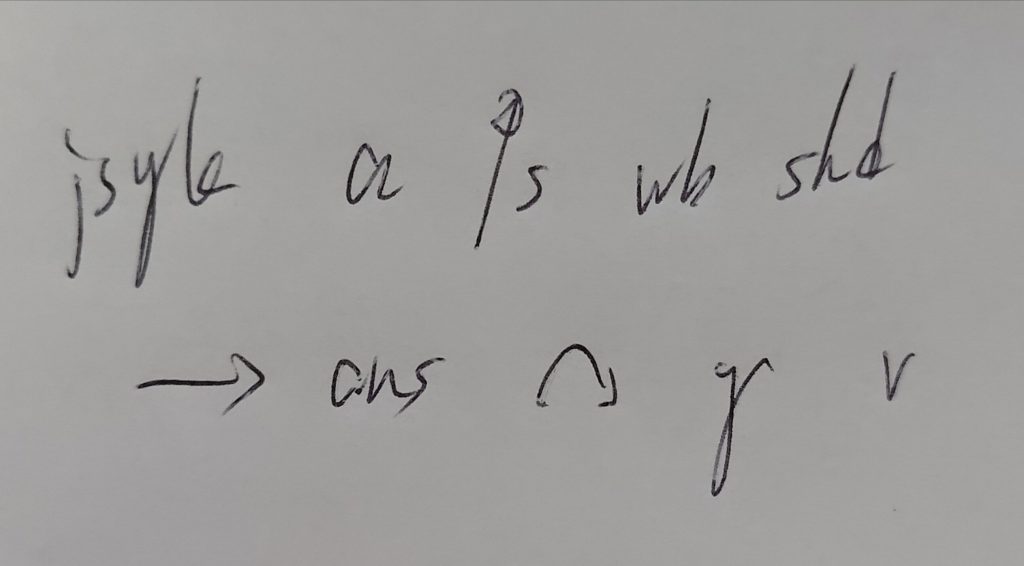 jsyk a ↑s wb shd
→ ans ↷ y v